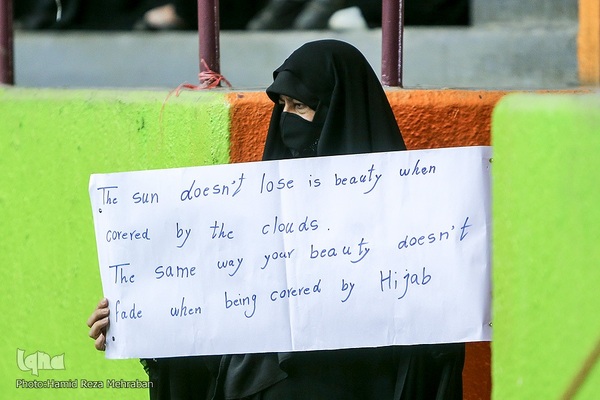 The sun doesn't lose is beauty when
covered by the clouds.
The same way your beauty doesn't
fade when being covered by Hijab
iqna
Photo:Hamid Reza Mehraban